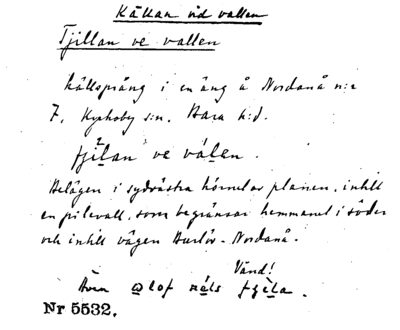 Källan vid vallen
Tjillan ve vallen
Källsprång i en äng å Nordanå n:r
7, Kyrkoby s:n. Bara h:d.
ve
Belägen i sydvästra hörnet av planen, intill
en pilevall, som begränsar hemmanet i söder
och intill vägen Burlöv - Nordanå.
Vänd!
Även
Nr 5532.